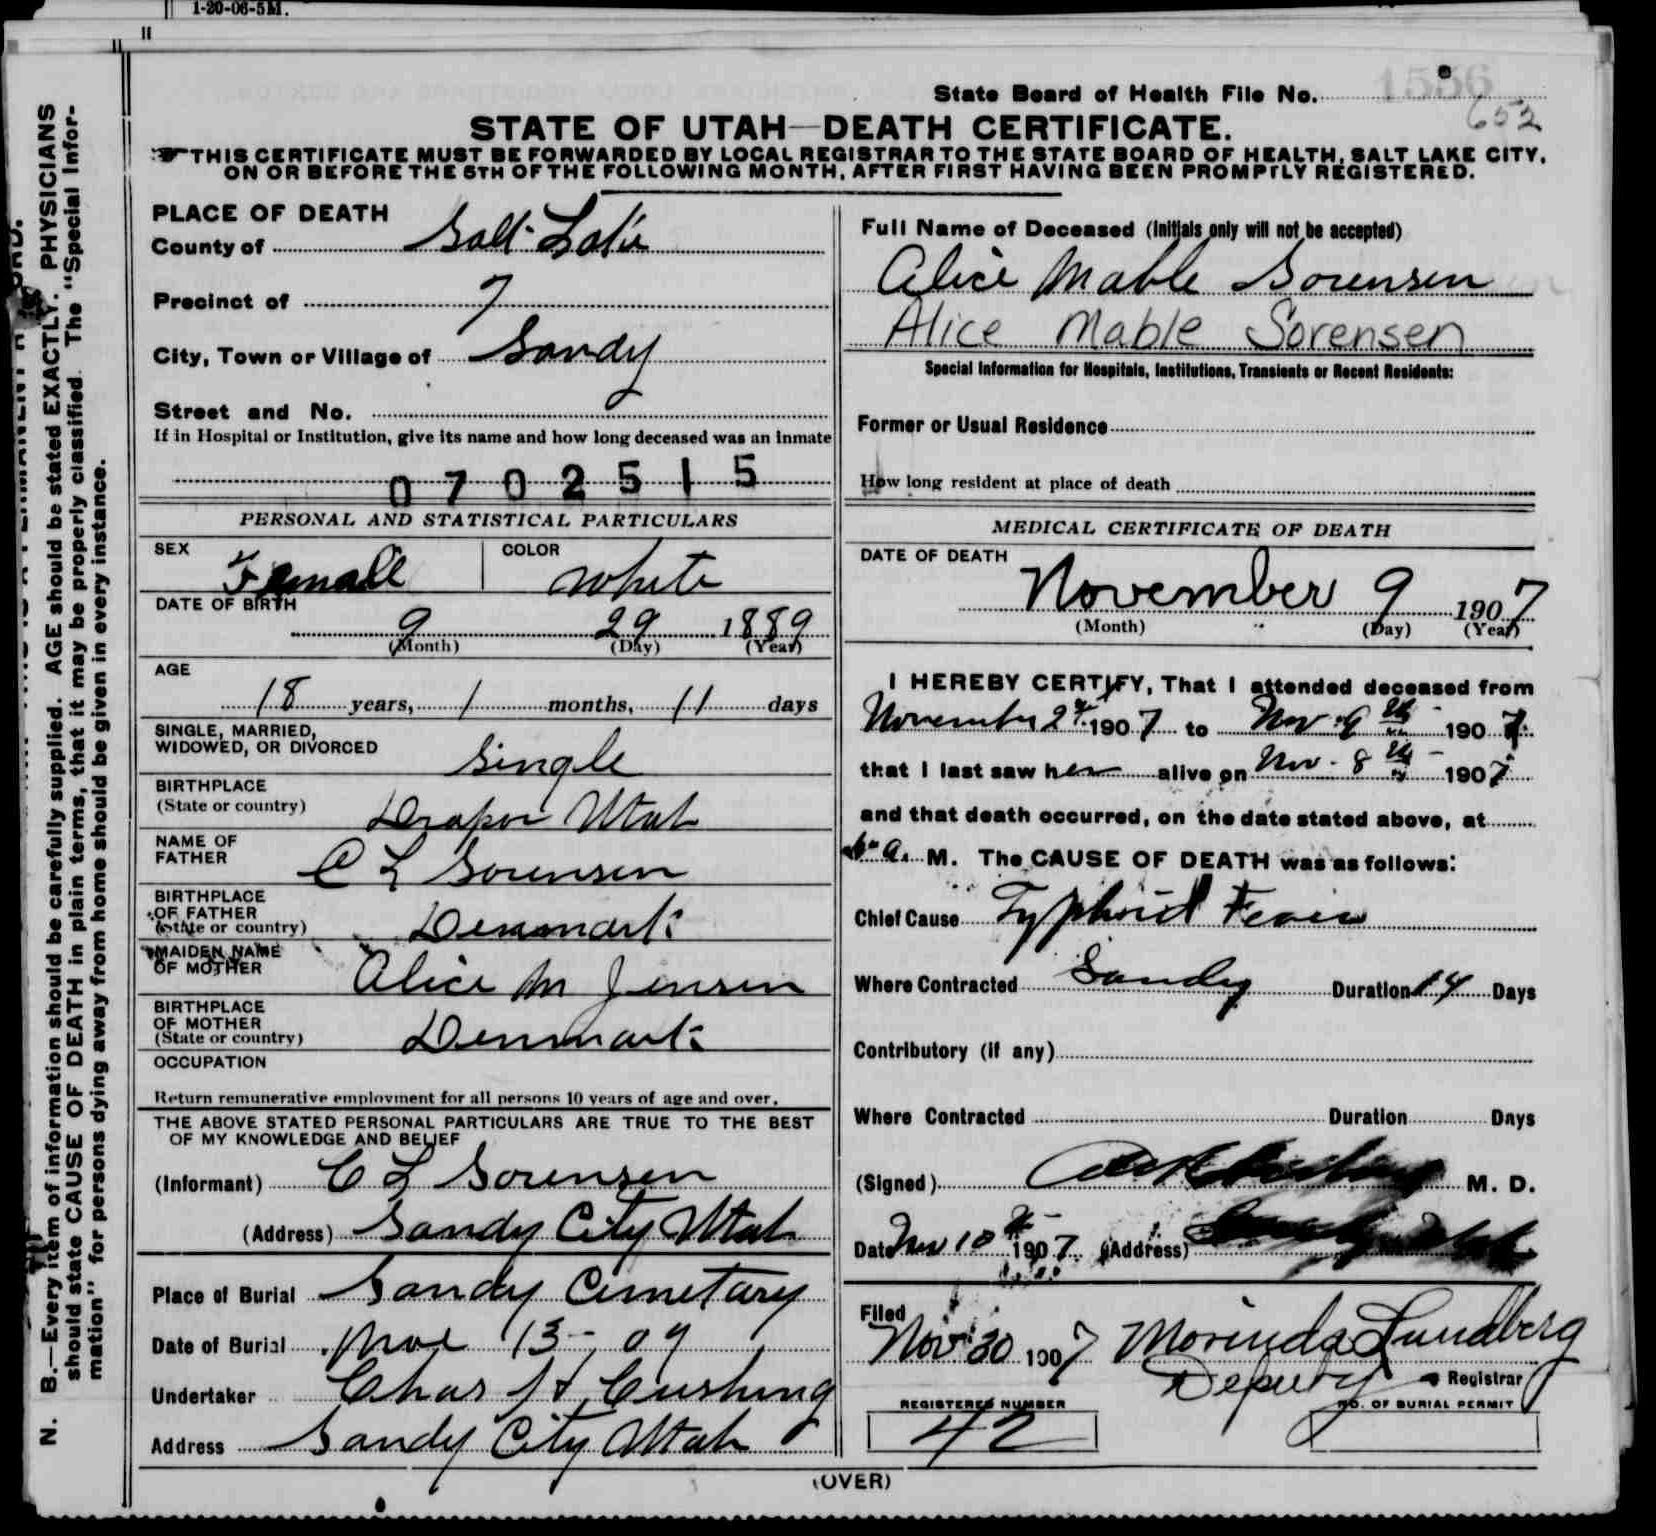 1-20-06-5M.
State Board of Health File No. 1556
652
STATE OF UTAH—DEATH CERTIFICATE.
THIS CERTIFICATE MUST BE FORWARDED BY LOCAL REGISTRAR TO THE STATE BOARD OF HEALTH, SALT LAKE CITY,
ON OR BEFORE THE 5TH OF THE FOLLOWING MONTH, AFTER FIRST HAVING BEEN PROMPTLY REGISTERED.
N. B.—Every item of information should be carefully supplied. AGE should be stated EXACTLY. PHYSICIANS
should state CAUSE OF DEATH in plain terms, that it may be properly classified. The "Special Infor-
mation" for persons dying away from home should be given in every instance.
PLACE OF DEATH
County of Salt Lake
Precinct of 7
City, Town or Village of Sandy
Street and No.
If in Hospital or Institution, give its name and how long deceased was an inmate
0702515
PERSONAL AND STATISTICAL PARTICULARS
SEX Female COLOR White
DATE OF BIRTH
9 29 1889
(Month) (Day) (Year)
AGE
18 years, 1 months, 11 days
SINGLE, MARRIED,
WIDOWED, OR DIVORCED Single
BIRTHPLACE
(State or country) Draper Utah
NAME OF
FATHER C L Sorensen
BIRTHPLACE
OF FATHER
(State or country) Denmark
MAIDEN NAME
OF MOTHER Alice M Jensen
BIRTHPLACE
OF MOTHER
(State or country) Denmark
OCCUPATION
Return remunerative employment for all persons 10 years of age and over.
THE ABOVE STATED PERSONAL PARTICULARS ARE TRUE TO THE BEST
OF MY KNOWLEDGE AND BELIEF
(Informant) C L Sorensen
(Address) Sandy City Utah
Place of Burial Sandy Cemetary
Date of Burial Nov 13-07
Undertaker Chas H Cushing
Address Sandy City Utah
Full Name of Deceased (Initials only will not be accepted)
Alice Mable Sorensen
Alice Mable Sorensen
Special Information for Hospitals, Institutions, Transients or Recent Residents:
Former or Usual Residence
How long resident at place of death
MEDICAL CERTIFICATE OF DEATH
DATE OF DEATH
November 9 1907
(Month) (Day) (Year)
I HEREBY CERTIFY, That I attended deceased from
November 2 1907 to Nov. 9th 1907
that I last saw her alive on Nov. 8th 1907
and that death occurred, on the date stated above, at
a. M. The CAUSE OF DEATH was as follows:
Chief Cause Typhoid Fever
Where Contracted Sandy Duration 14 Days
Contributory (if any)
Where Contracted Duration Days
(Signed) M. D.
Date Nov 10 1907 (Address) Sandy Utah
Filed
Nov 30 1907 Morinda Lundberg
Deputy Registrar
REGISTERED NUMBER NO. OF BURIAL PERMIT
42
(OVER)